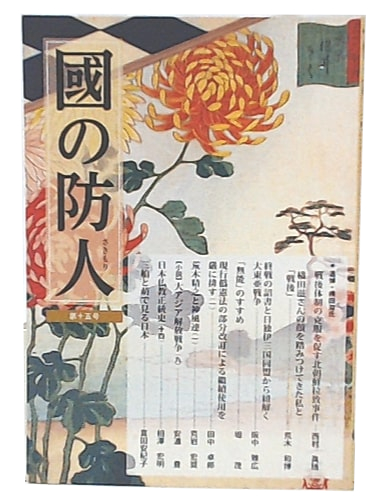 國の防人
さきもり
第十五号
●追悼・横田滋氏
戦後体制の克服を促す北朝鮮拉致事件 西村 眞悟
横田滋さんの顔を踏みつけてきた私と「戦後」 荒木 和博
終戦の詔書と日独伊三国同盟から紐解く大東亜戦争 阪中 雅広
「無能」のすすめ 堀 茂
現行偽憲法の部分改正による継続使用を厳に排す 田中 卓郎
荒木精之と神風連(二) 荒岩 宏奨
【小説】大アジア解放戦争(九) 安濃 豊
日本仏教正統史(十四) 相澤 宏明
三船と萌で見る日本 冨田安紀子